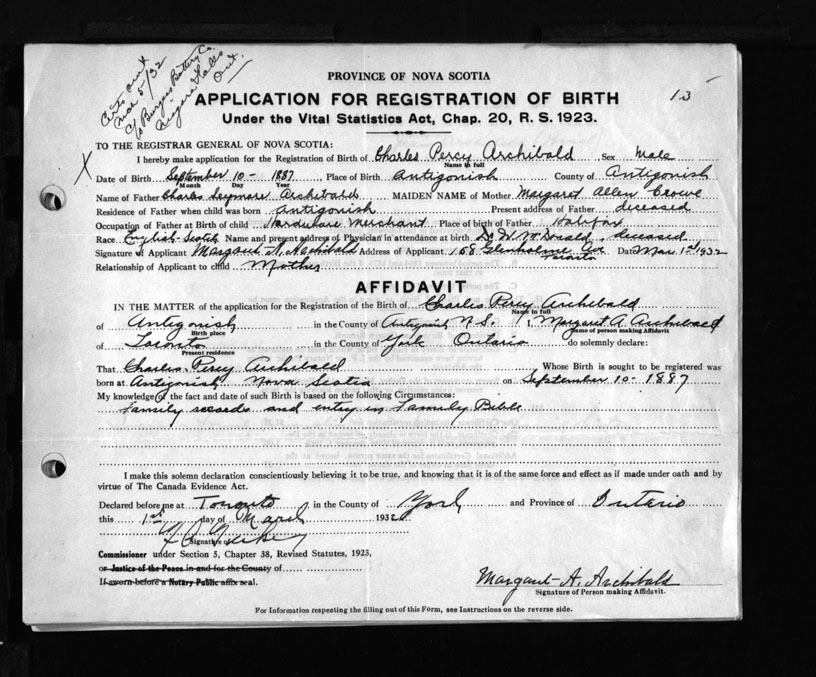 Certs. sent
Mar 5/32
c/o Burgess Battery Co.
Niagara Falls
Ont.
PROVINCE OF NOVA SCOTIA
13
APPLICATION FOR REGISTRATION OF BIRTH
Under the Vital Statistics Act, Chap. 20, R. S. 1923.
TO THE REGISTRAR GENERAL OF NOVA SCOTIA:
X
I hereby make application for the Registration of Birth of Charles Percy Archibald Sex Male
Name in full
Date of Birth September 10 - 1887 Place of Birth Antigonish County of Antigonish
Month Day Year
Name of Father Charles Seymore Archibald MAIDEN NAME of Mother Margaret Allen Crowe
Residence of Father when child was born Antigonish Present address of Father deceased
Occupation of Father at Birth of child Hardware Merchant Place of birth of Father Halifax
Race English-Scotch Name and present address of Physician in attendance at birth Dr. W. McDonald, deceased
Signature of Applicant Margaret A. Archibald Address of Applicant 168 Glenholme Ave Toronto Date Mar 1st 1932
Relationship of Applicant to child Mother
AFFIDAVIT
IN THE MATTER of the application for the Registration of the Birth of Charles Percy Archibald
Name in full
of Antigonish in the County of Antigonish N.S. I, Margaret A. Archibald
Birth place Name of person making Affidavit
of Toronto in the County of York Ontario do solemnly declare:
Present residence
That Charles Percy Archibald Whose Birth is sought to be registered was
born at Antigonish Nova Scotia on September 10 - 1887
My knowledge of the fact and date of such Birth is based on the following Circumstances:
Family records and entry in Family Bible
I make this solemn declaration conscientiously believing it to be true, and knowing that it is of the same force and effect as if made under oath and by
virtue of The Canada Evidence Act.
Declared before me at Toronto in the County of York and Province of Ontario
this 1st day of March 1932
Signature of
Commissioner under Section 5, Chapter 38, Revised Statutes, 1923,
or Justice of the Peace in and for the County of
If sworn before a Notary Public affix seal.
Margaret A. Archibald
Signature of Person making Affidavit.
For Information respecting the filling out of this Form, see Instructions on the reverse side.